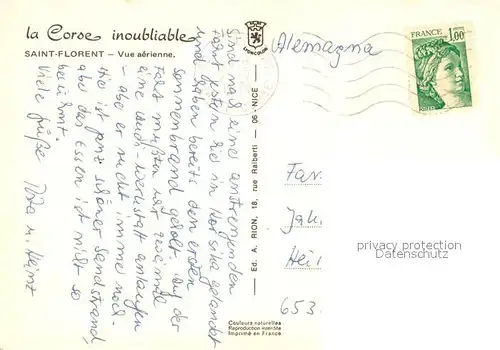 la Corse inoubliable
SAINT-FLORENT — Vue aérienne.
LYONCOLOR
FRANCE
1,00
POSTES
Alemagna
Sind nach einer anstrengenden
Fahrt gestern hier in Korsika gelandet
und haben bereits den ersten
Sonnenbrand geholt. Auf der
Fahrt mußten wir zweimal
eine Audi-Werkstatt anlaufen
– aber er raucht immer noch –
Hier ist ganz schöner Sandstrand,
aber das Essen ist nicht so
berühmt.
Viele Grüße
u. Heinz
— Ed. A. RION, 18, rue Ralberti — 06 - NICE —
Fam.
Jak.
Hei
653
privacy protection
Datenschutz
Couleurs naturelles
Reproduction interdite
Imprimé en France